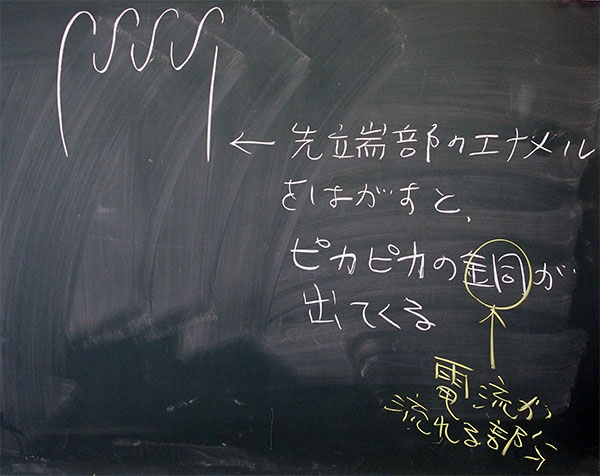 ← 先端部のエナメル
をはがすと、
ピカピカの銅が
出てくる
↑
電流が
流れる部分